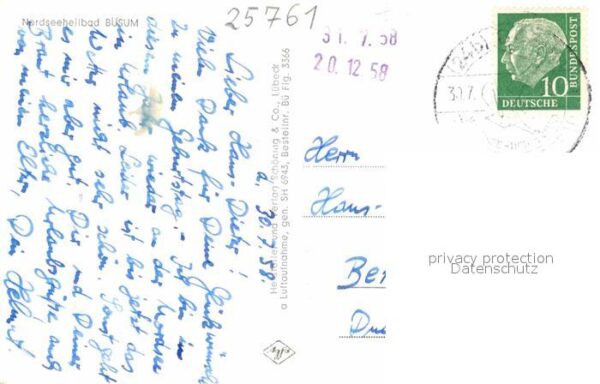 Nordseeheilbad BÜSUM
25761
31. 7. 58
20. 12. 58
10
DEUTSCHE
BUNDESPOST
30.7.
a. 30.7.58.
Lieber Hans-Dieter!
Vielen Dank für Deine Glückwünsche
zu meinem Geburtstag. Ich bin in
diesem Jahr wieder an der Nordsee
in Urlaub. Leider ist bis jetzt das
Wetter nicht sehr schön. Sonst geht
es mir aber gut. Dir und Deiner
Braut herzliche Urlaubsgrüße auch
von meinen Eltern, Dein Helmut.
Hersteller und Verlag Schöning & Co., Lübeck
a Luftaufnahme, gen. SH 6943, Bestellnr. Bü Flg. 3366
Herrn
Hans-
Ber
privacy protection
Datenschutz